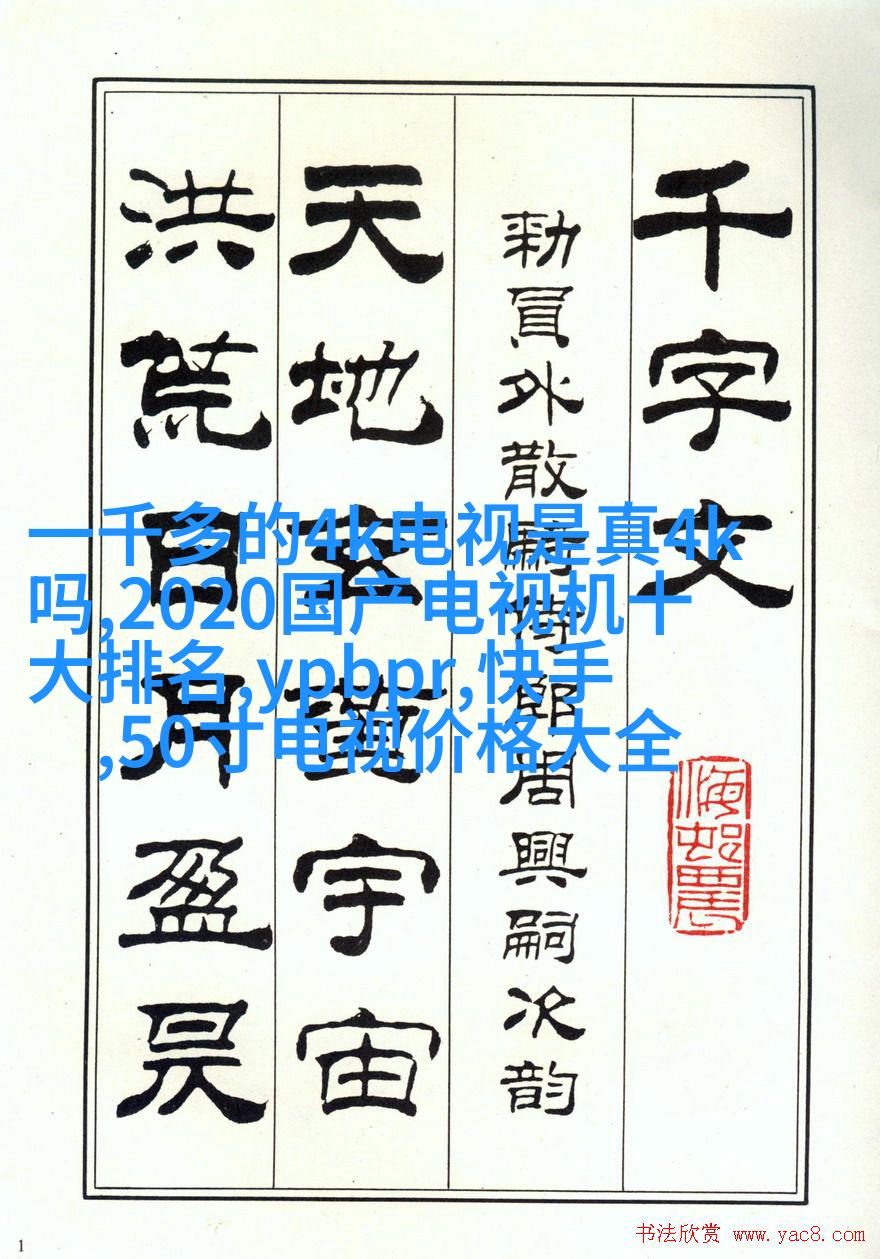 千字文
勑員外散騎侍郎周興嗣次韵
天地玄黃宇宙
洪荒日月盈昃
一千多的4k电视是真4k
吗,2020国产电视机十
大排名,ypbpr,快手
,50寸电视价格大全
1
书法欣赏 www.yac8.com